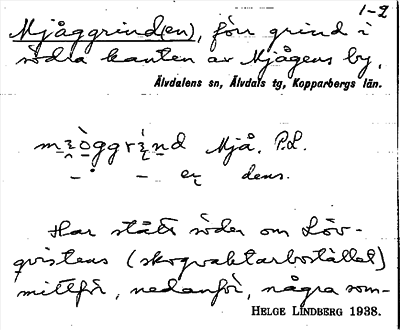 1-2
Mjåggrind(en), förr grind i
södra kanten av Mjågens by.
Älvdalens sn, Älvdals tg, Kopparbergs län.
Mjå. P.L.
dens.
Har stått söder om Löv-
qvistens (skogvaktarbostället)
mittför, nedanför, några som-
HELGE LINDBERG 1938.